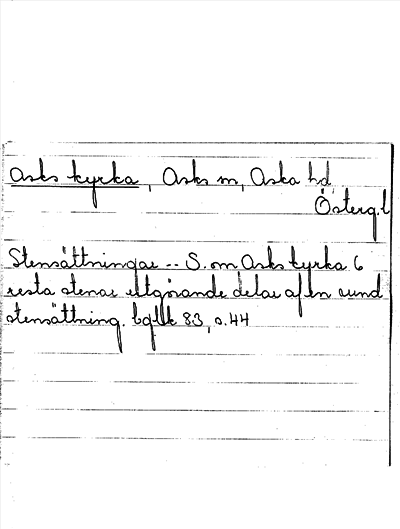 Asks kyrka, Asks sn, Aska hd
Österg.l
Stensättningar -- S. om Asks kyrka 6
resta stenar utgörande delar af en rund
stensättning. bqllk 83, s. 44